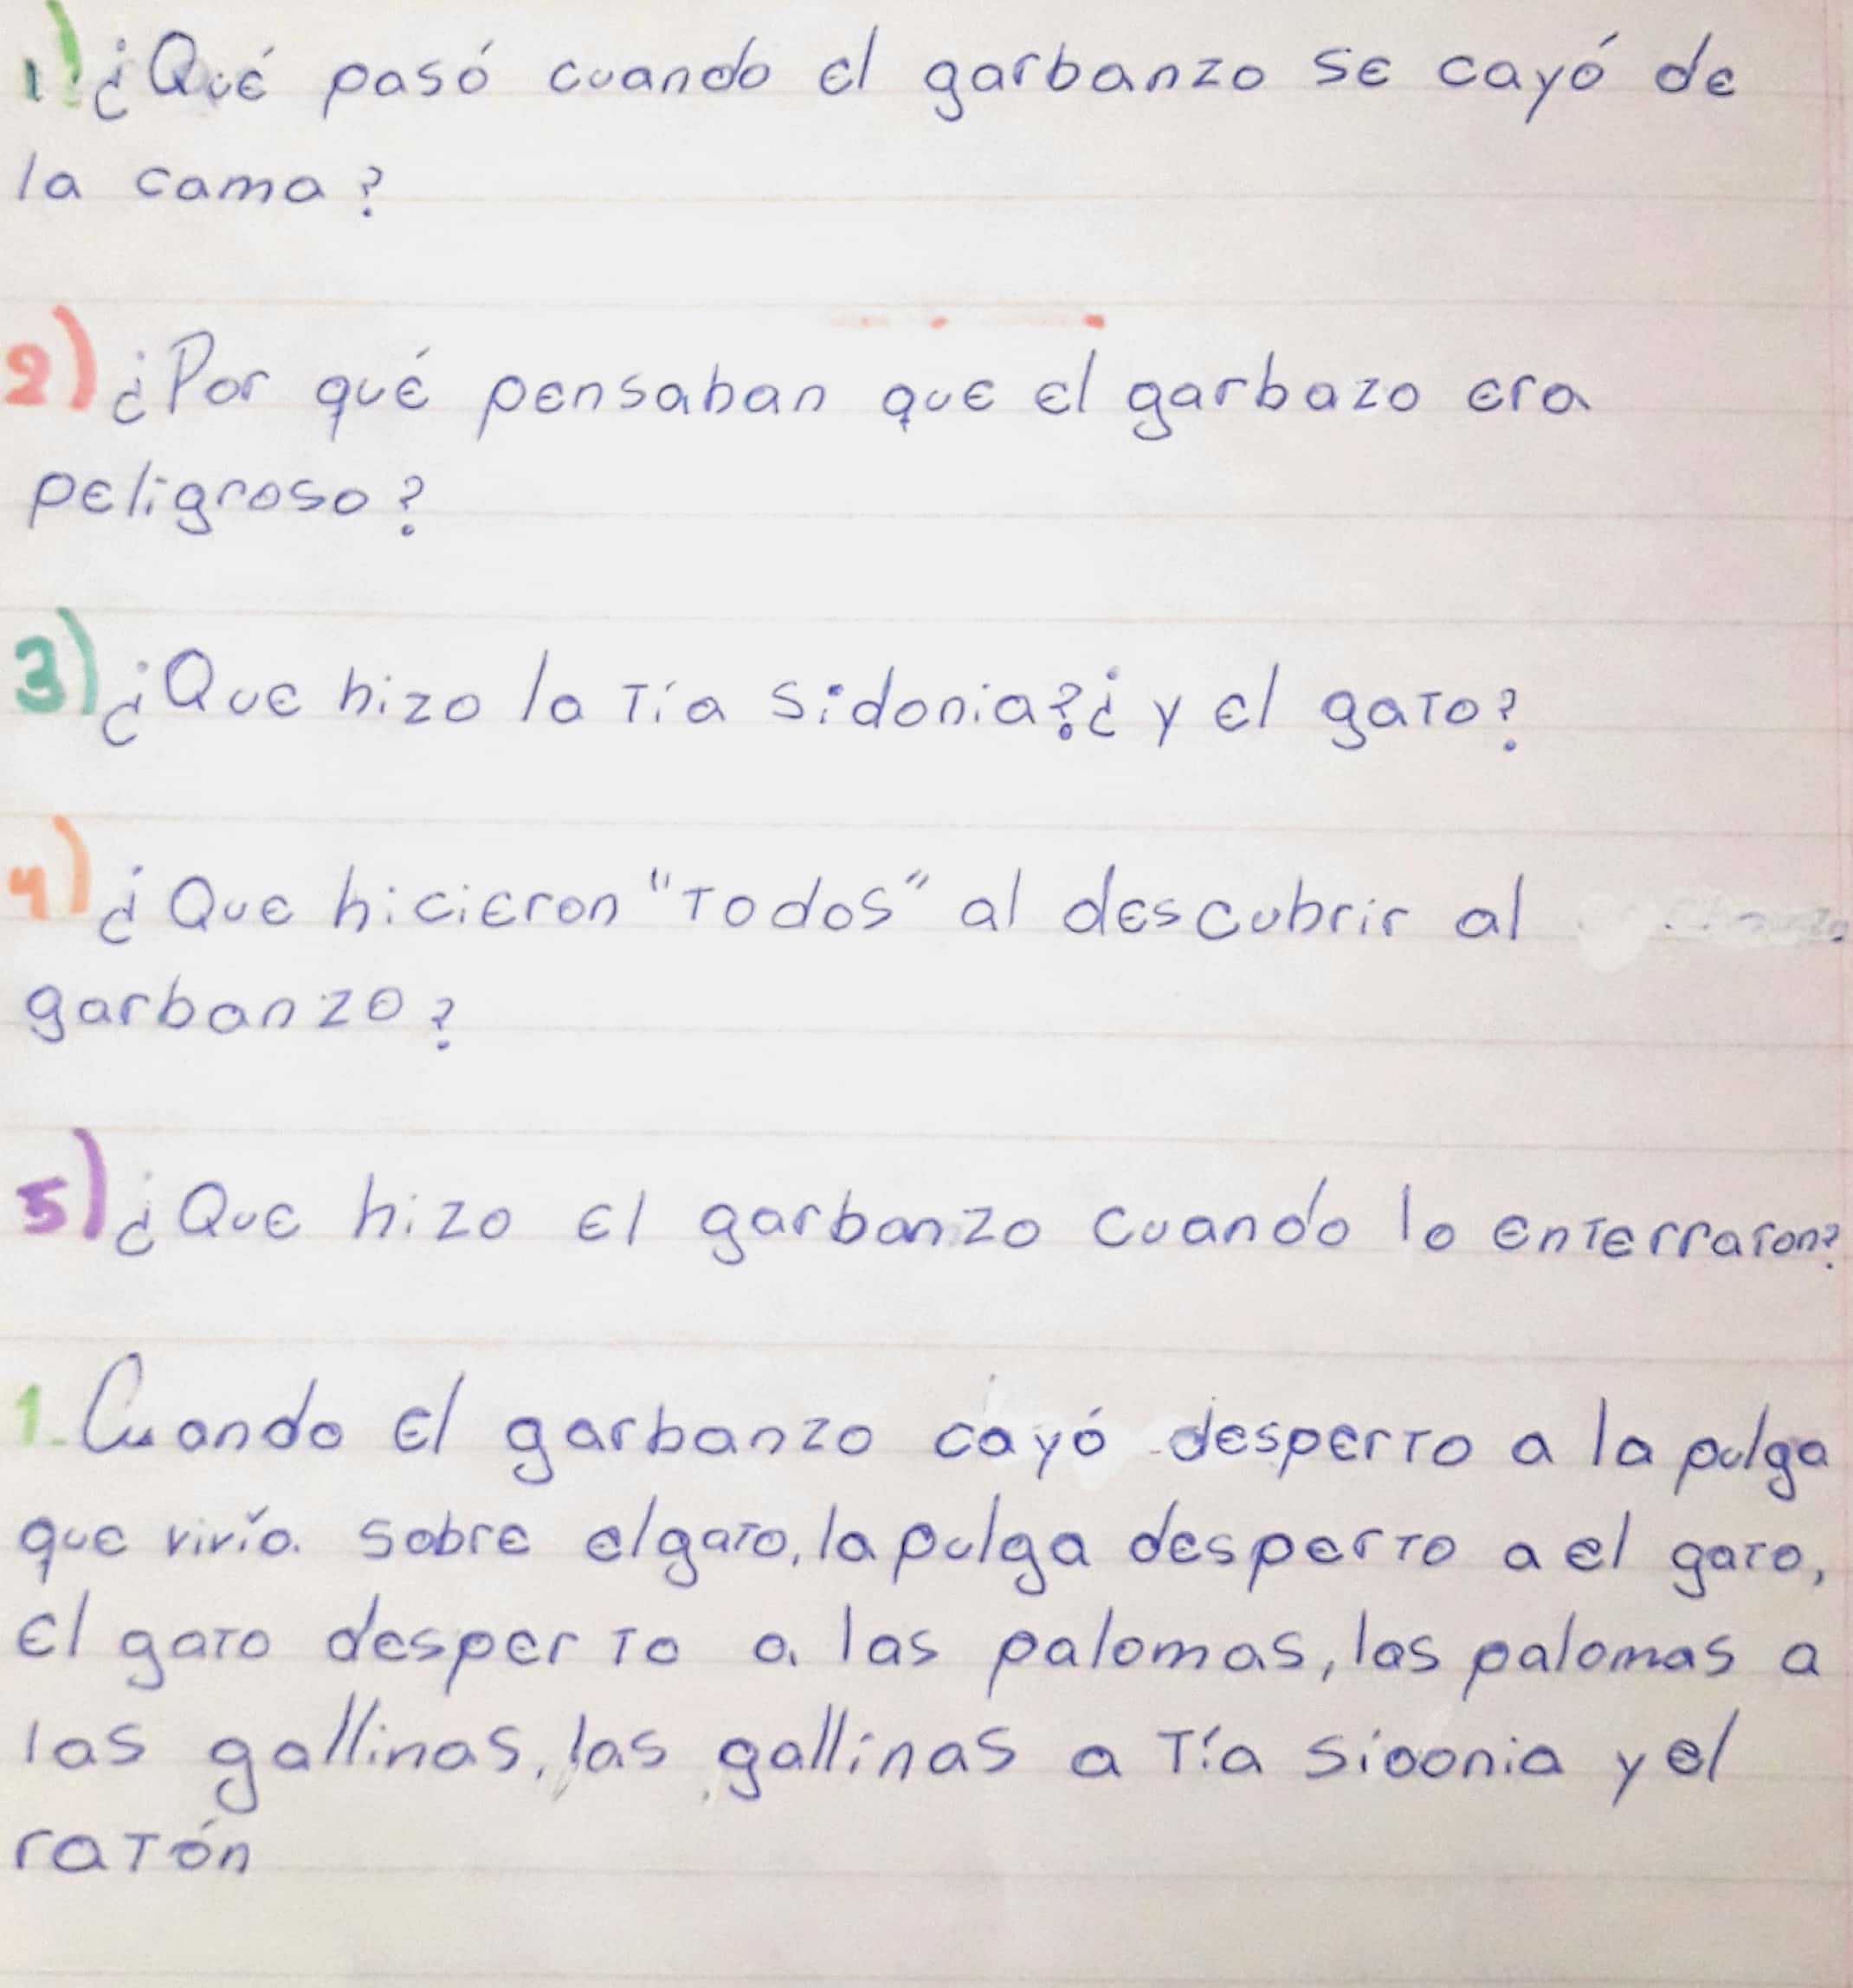 1) ¿Qué pasó cuando el garbanzo se cayó de
la cama?
2) ¿Por qué pensaban que el garbazo era
peligroso?
3) ¿Que hizo la Tía Sidonia? ¿y el gato?
4) ¿Que hicieron "Todos" al descubrir al
garbanzo?
5) ¿Que hizo el garbanzo cuando lo enterraron?
1. Cuando el garbanzo cayó desperto a la pulga
que vivía sobre el gato, la pulga desperto a el gato,
el gato desperto a las palomas, las palomas a
las gallinas, las gallinas a Tía Sidonia y el
ratón